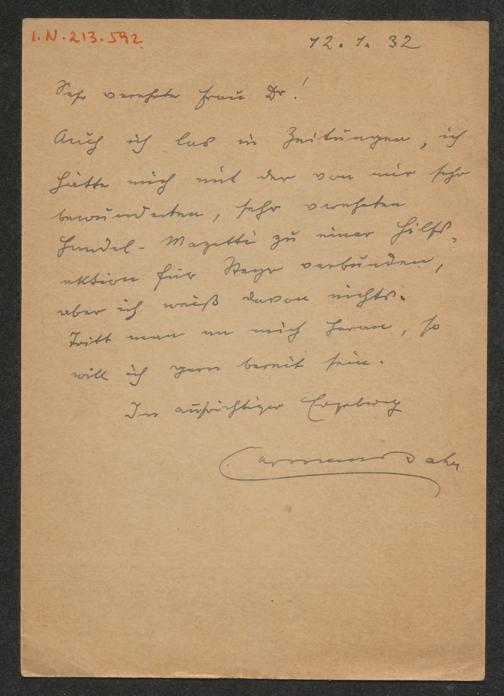 I.N. 213.592
12. 1. 32
Sehr verehrte Frau Dr.!
Auch ich las in Zeitungen, ich
hätte mich mit der von mir sehr
bewunderten, sehr verehrten
Handel-Mazetti zu einer Hilfs-
aktion für Steyr verbunden,
aber ich weiß davon nichts.
Tritt man an mich heran, so
will ich gern bereit sein.
In aufrichtiger Ergebung